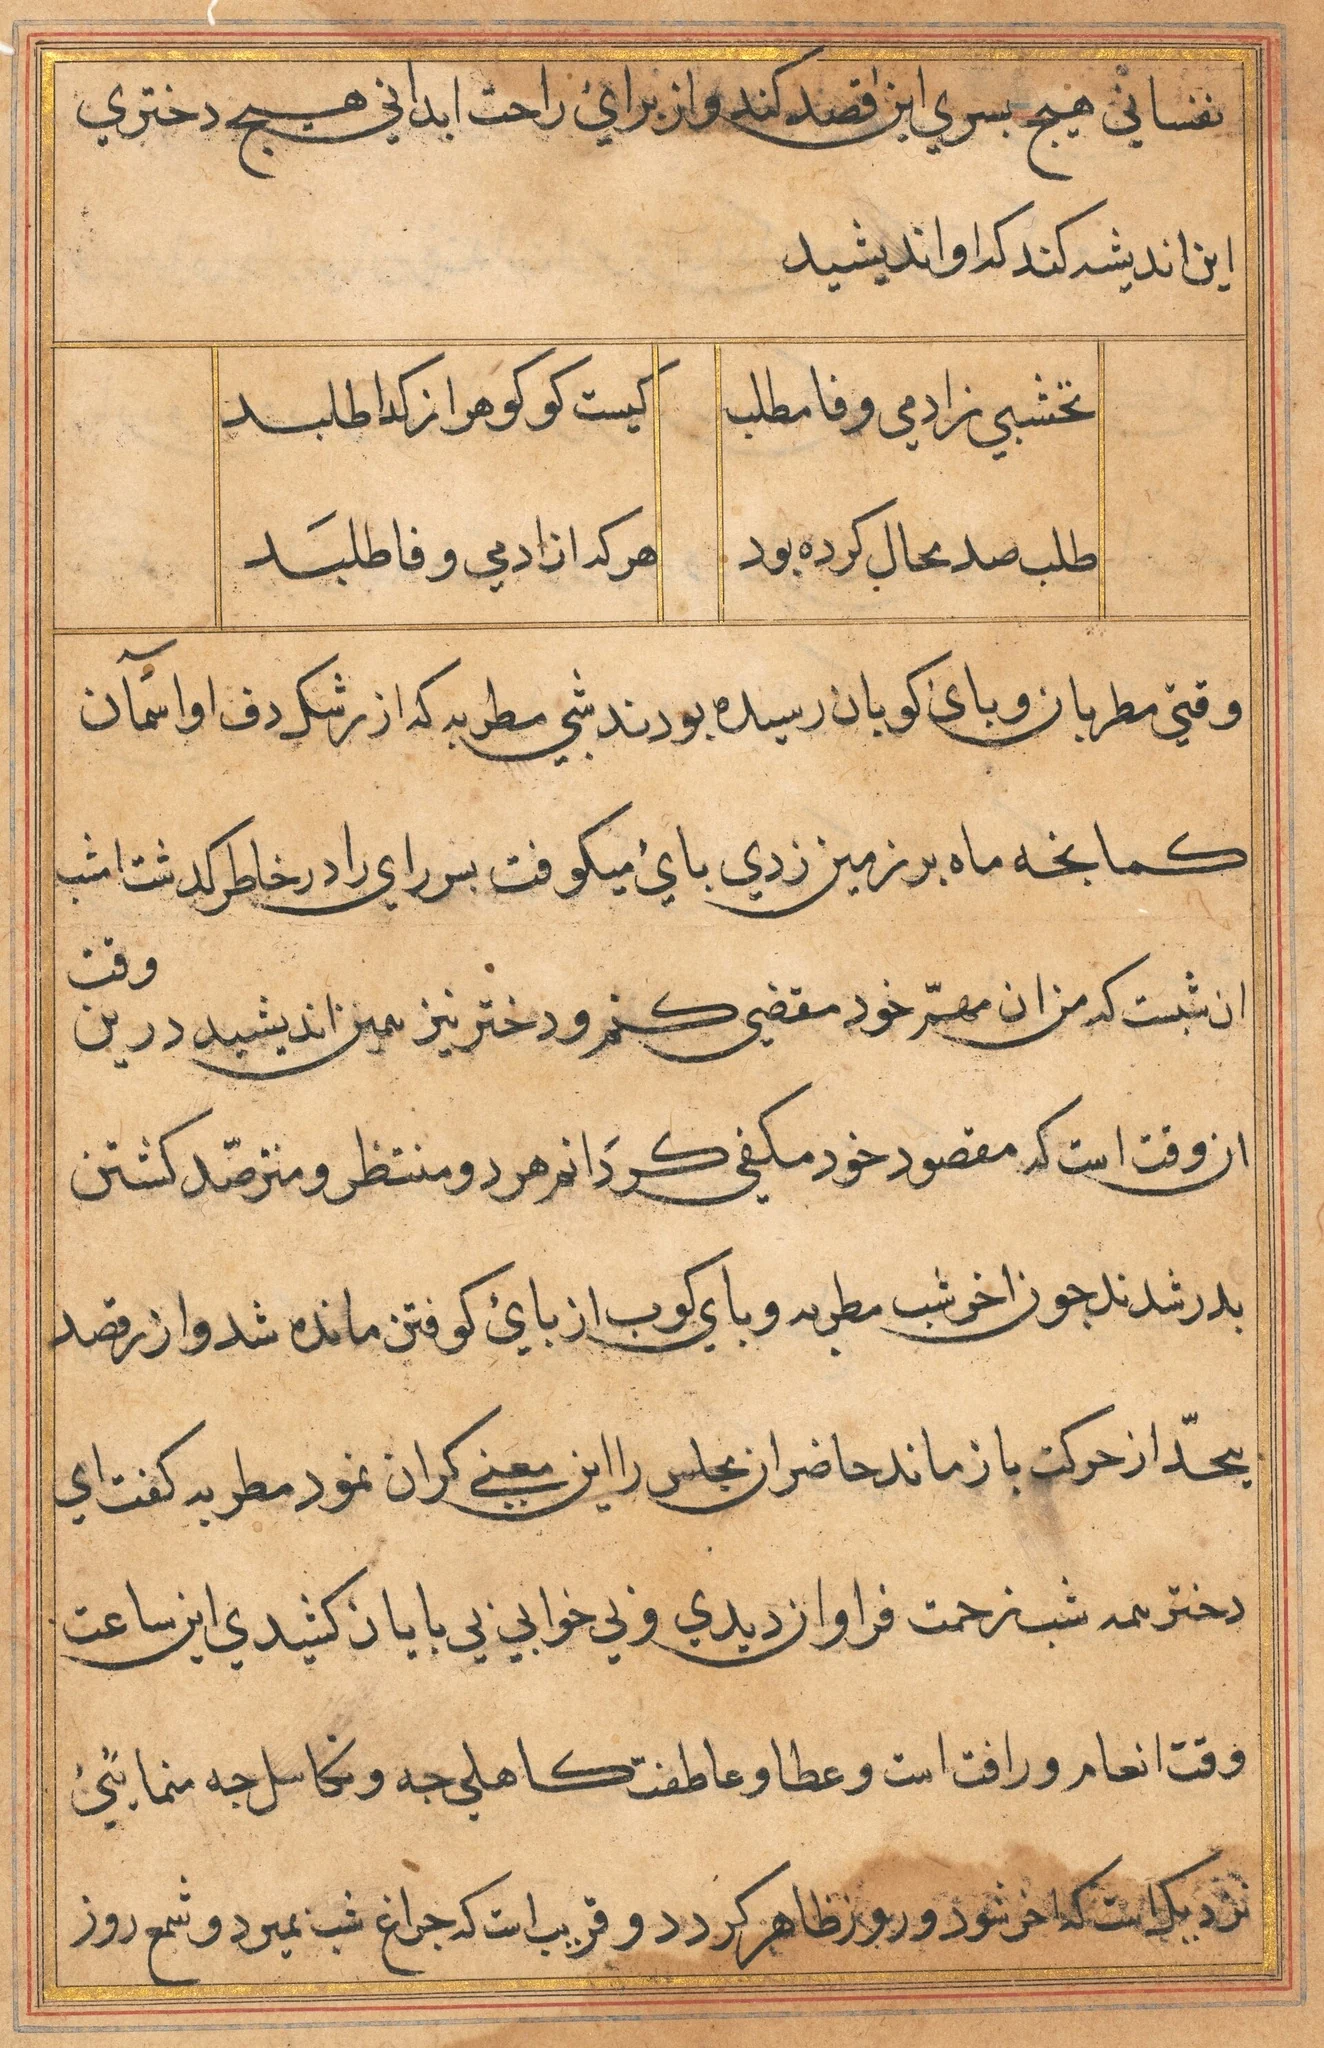 نفسانی هیچ بسری این قصد کند و از برائ راحت ابدانی هیچ دختری
این اندیشه کند که او اندیشید
نخشبی زادمی وفا مطلب کیست کو کوهر از کدا طلبد
طلب صد محال کرده بود هر که از ادمی وفا طلبَد
وقتی مطربان و بای کوبان رسیده بودند شبی مطربه که از رشک دف او اسمآن
کمانجه ماه بر زمین زدی بائ میکوفت بس رای را در خاطر کدشت امشب
ان شبست که من ان مهمّ خود مقضی کنم و دختر نیز همین اندیشید درین وقت
ان وقت است که مقصود خود مکفی کردَانم هر دو منتظر و مترصّد کشتن
بدر شدند جون اخر شب مطربه و بای کوب از بائ کوفتن مانده شد و از رقصد
بحدّ از حرکت باز ماند حاضران مجلس را این معنی کران نمود مطربه کفت ای
دختر همه شب زحمت فراوان دیدی و بی خوابی بی بایان کشیدی این ساعت
وقت انعام و رافت است و عطا و عاطفت کاهلی جه و تکاسل جه منمائی
نزدیک است که اخر شود و روز ظاهر کردد و قریب است که جراغ شب بمیرد و شمع روز